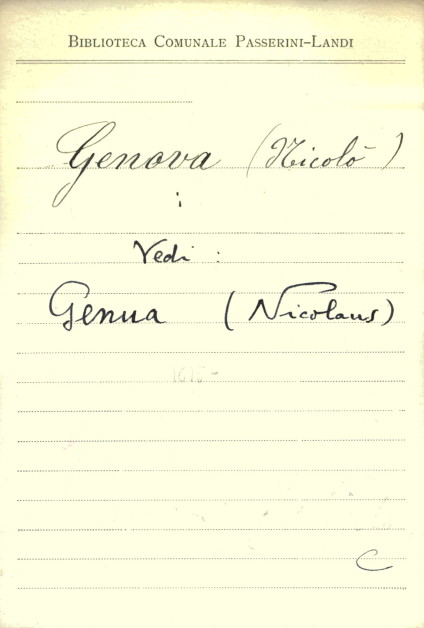 BIBLIOTECA COMUNALE PASSERINI-LANDI
Genova (Nicolò)
Vedi :
Genua (Nicolaus)
C